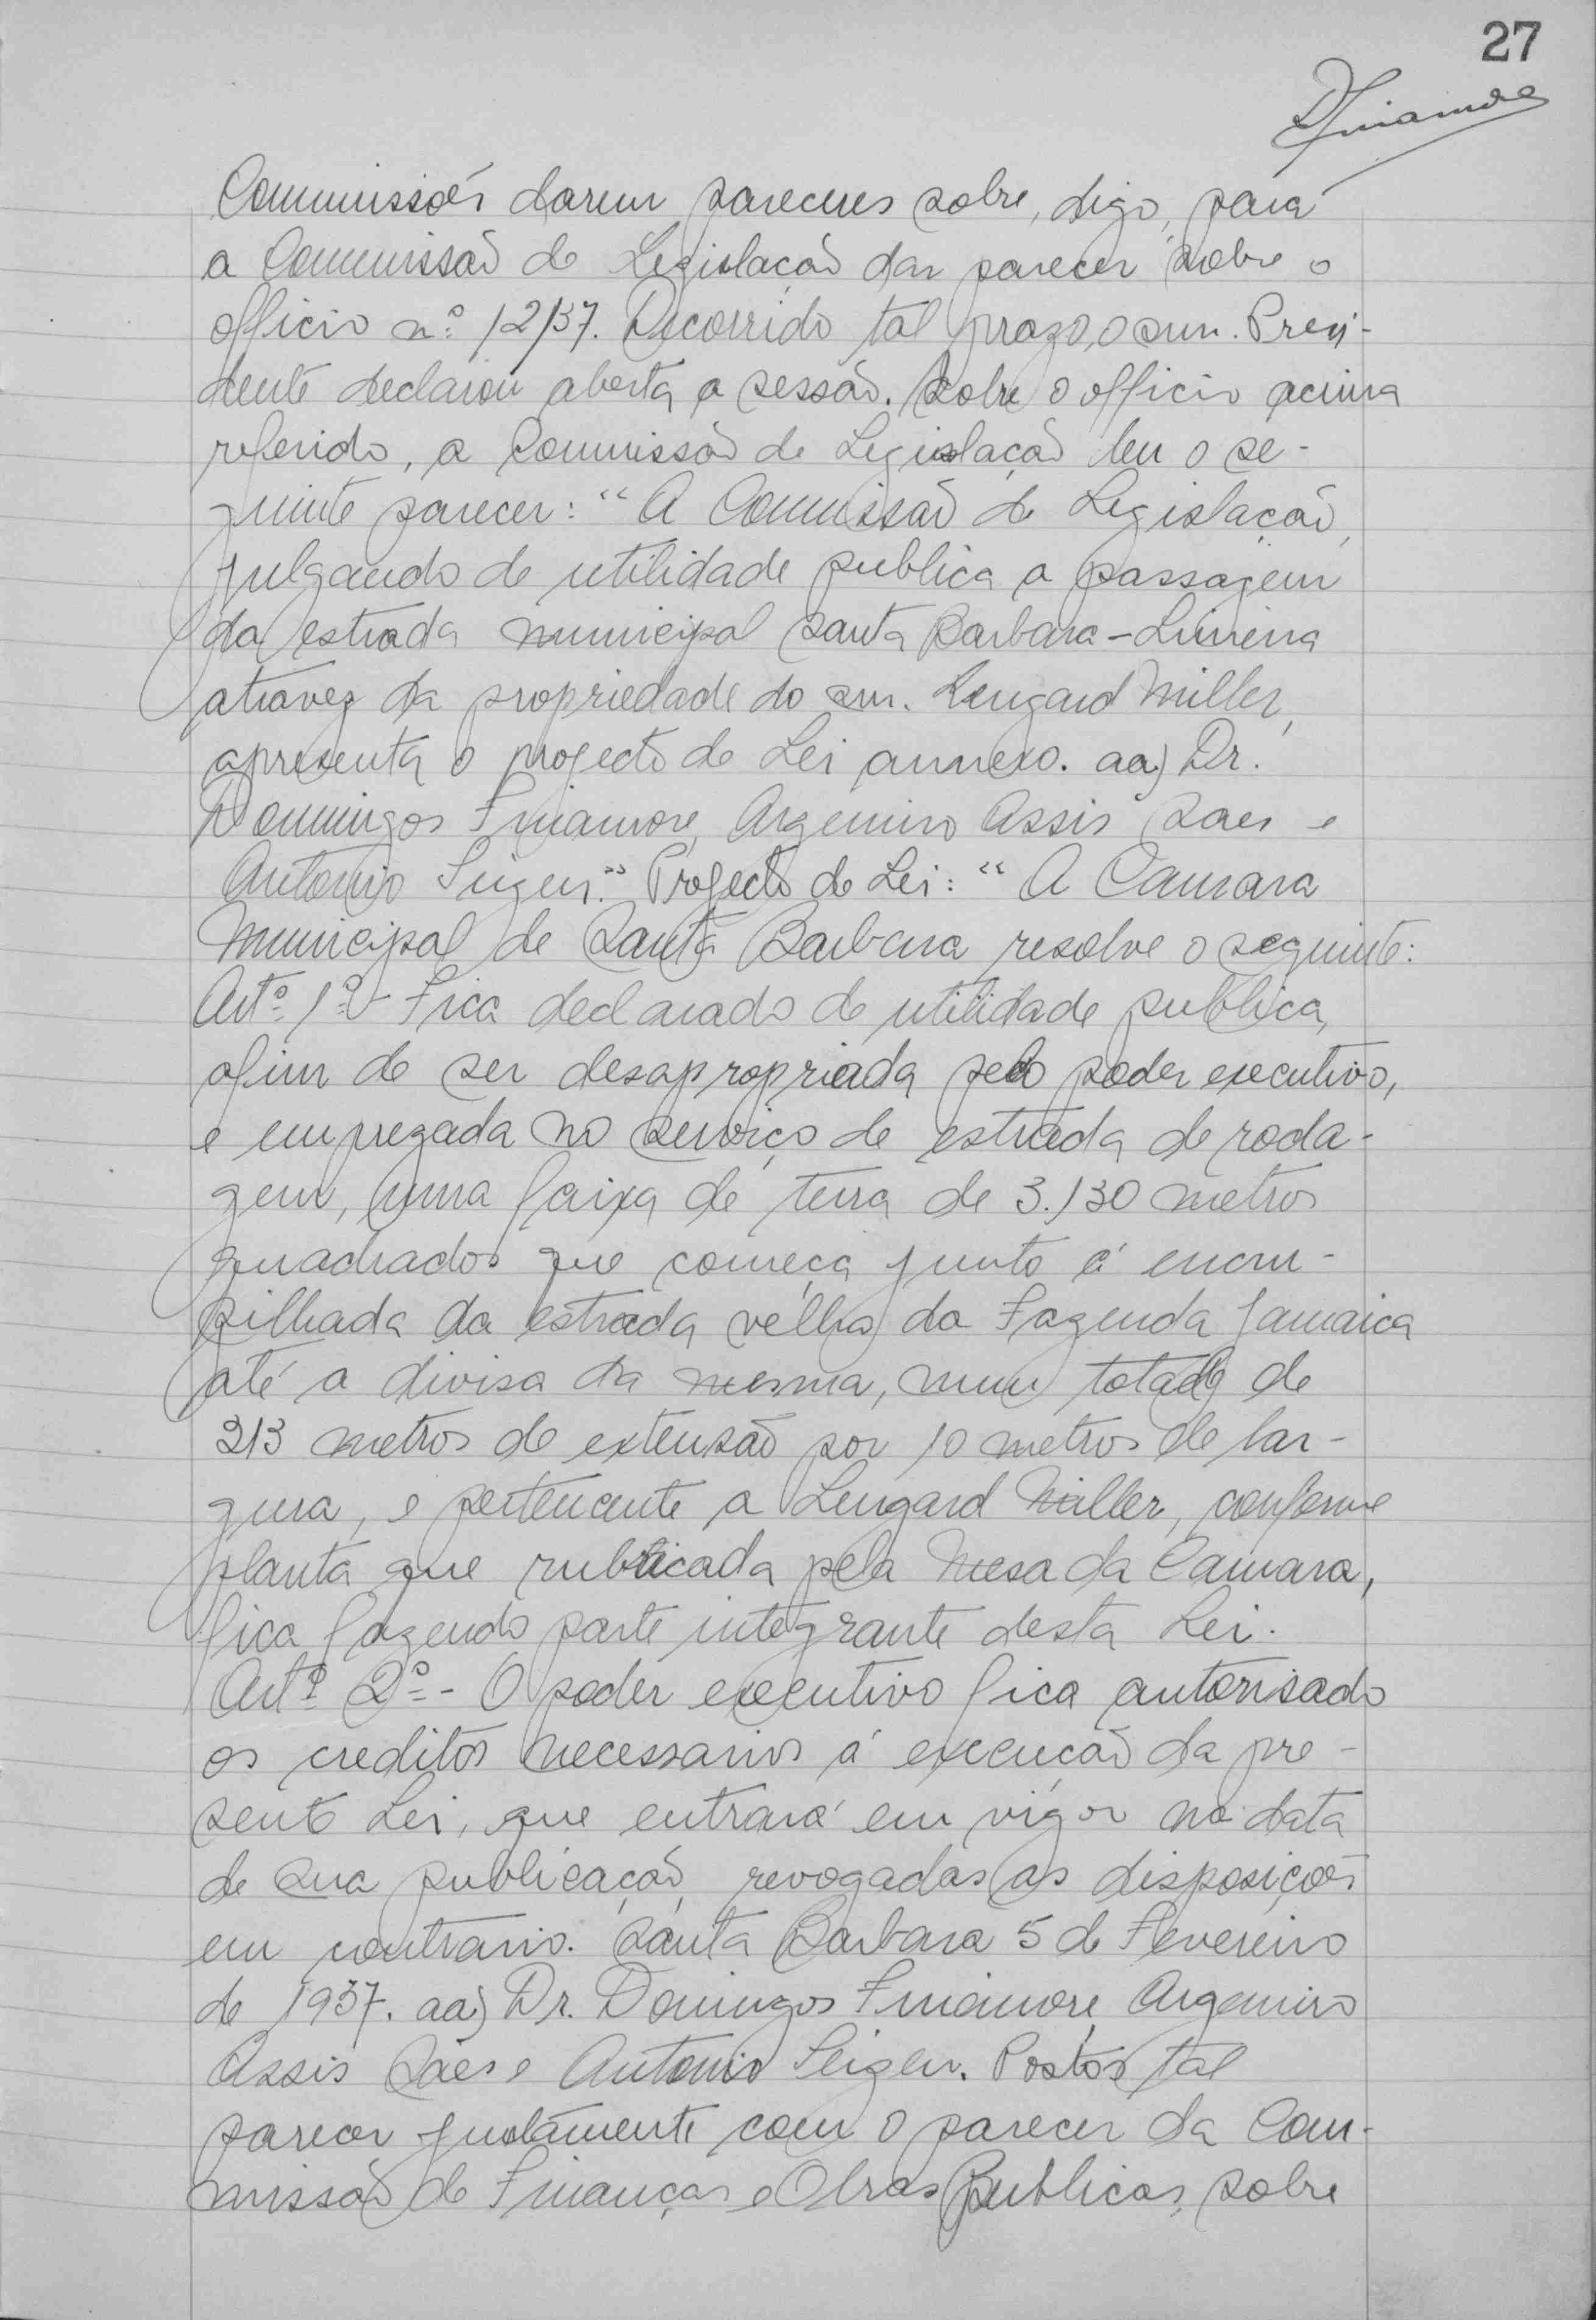 27
DFinamore
Commissões darem pareceres sobre, digo, para
a Commissão de Legislação dar parecer sobre o
officio nº 12/37. Decorrido tal prazo, o snr. Presi-
dente declarou aberta a sessão. Sobre o officio acima
referido, a Commissão de Legislação deu o se-
guinte parecer: "A Commissão de Legislação,
julgando de utilidade publica a passagem
da estrada municipal Santa Barbara - Limeira
atravez da propriedade do snr. Lengard Miller,
apresenta o projecto de Lei annexo. aa) Dr.
Domingos Finamore, Argemiro Assis Saes e
Antonio Furlan." Projecto de Lei: "A Camara
Municipal de Santa Barbara resolve o seguinte:
Artº 1º - Fica declarado de utilidade publica,
afim de ser desapropriada pelo poder executivo,
e empregada no serviço de estrada de roda-
gem, uma faixa de terra de 3.130 metros
quadrados que começa junto á encru-
zilhada da estrada velha da Fazenda Jamaica
até a divisa da mesma, num total de
313 metros de extensão por 10 metros de lar-
gura, e pertencente a Lengard Miller, conforme
planta que rubricada pela Mesa da Camara,
fica fazendo parte integrante desta Lei.
Artº 2º - O poder executivo fica autorisado
os creditos necessarios á execução da pre-
sente Lei, que entrará em vigor na data
de sua publicação, revogadas as disposições
em contrario. Santa Barbara 5 de Fevereiro
de 1937. aa) Dr. Domingos Finamore, Argemiro
Assis Saes e Antonio Postos tal
parecer juntamente com o parecer da Com-
missão de Finanças e Obras Publicas, sobre